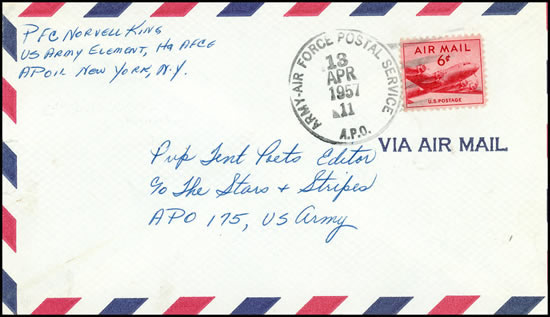 PFC NORVELL KING
US ARMY ELEMENT, HQ AFCE
APO 11, NEW YORK, N.Y.
ARMY-AIR FORCE POSTAL SERVICE
13
APR
1957
11
A.P.O.
AIR MAIL
6¢
U.S. POSTAGE
VIA AIR MAIL
Pup Tent Poets Editor
c/o The Stars & Stripes
APO 175, US Army